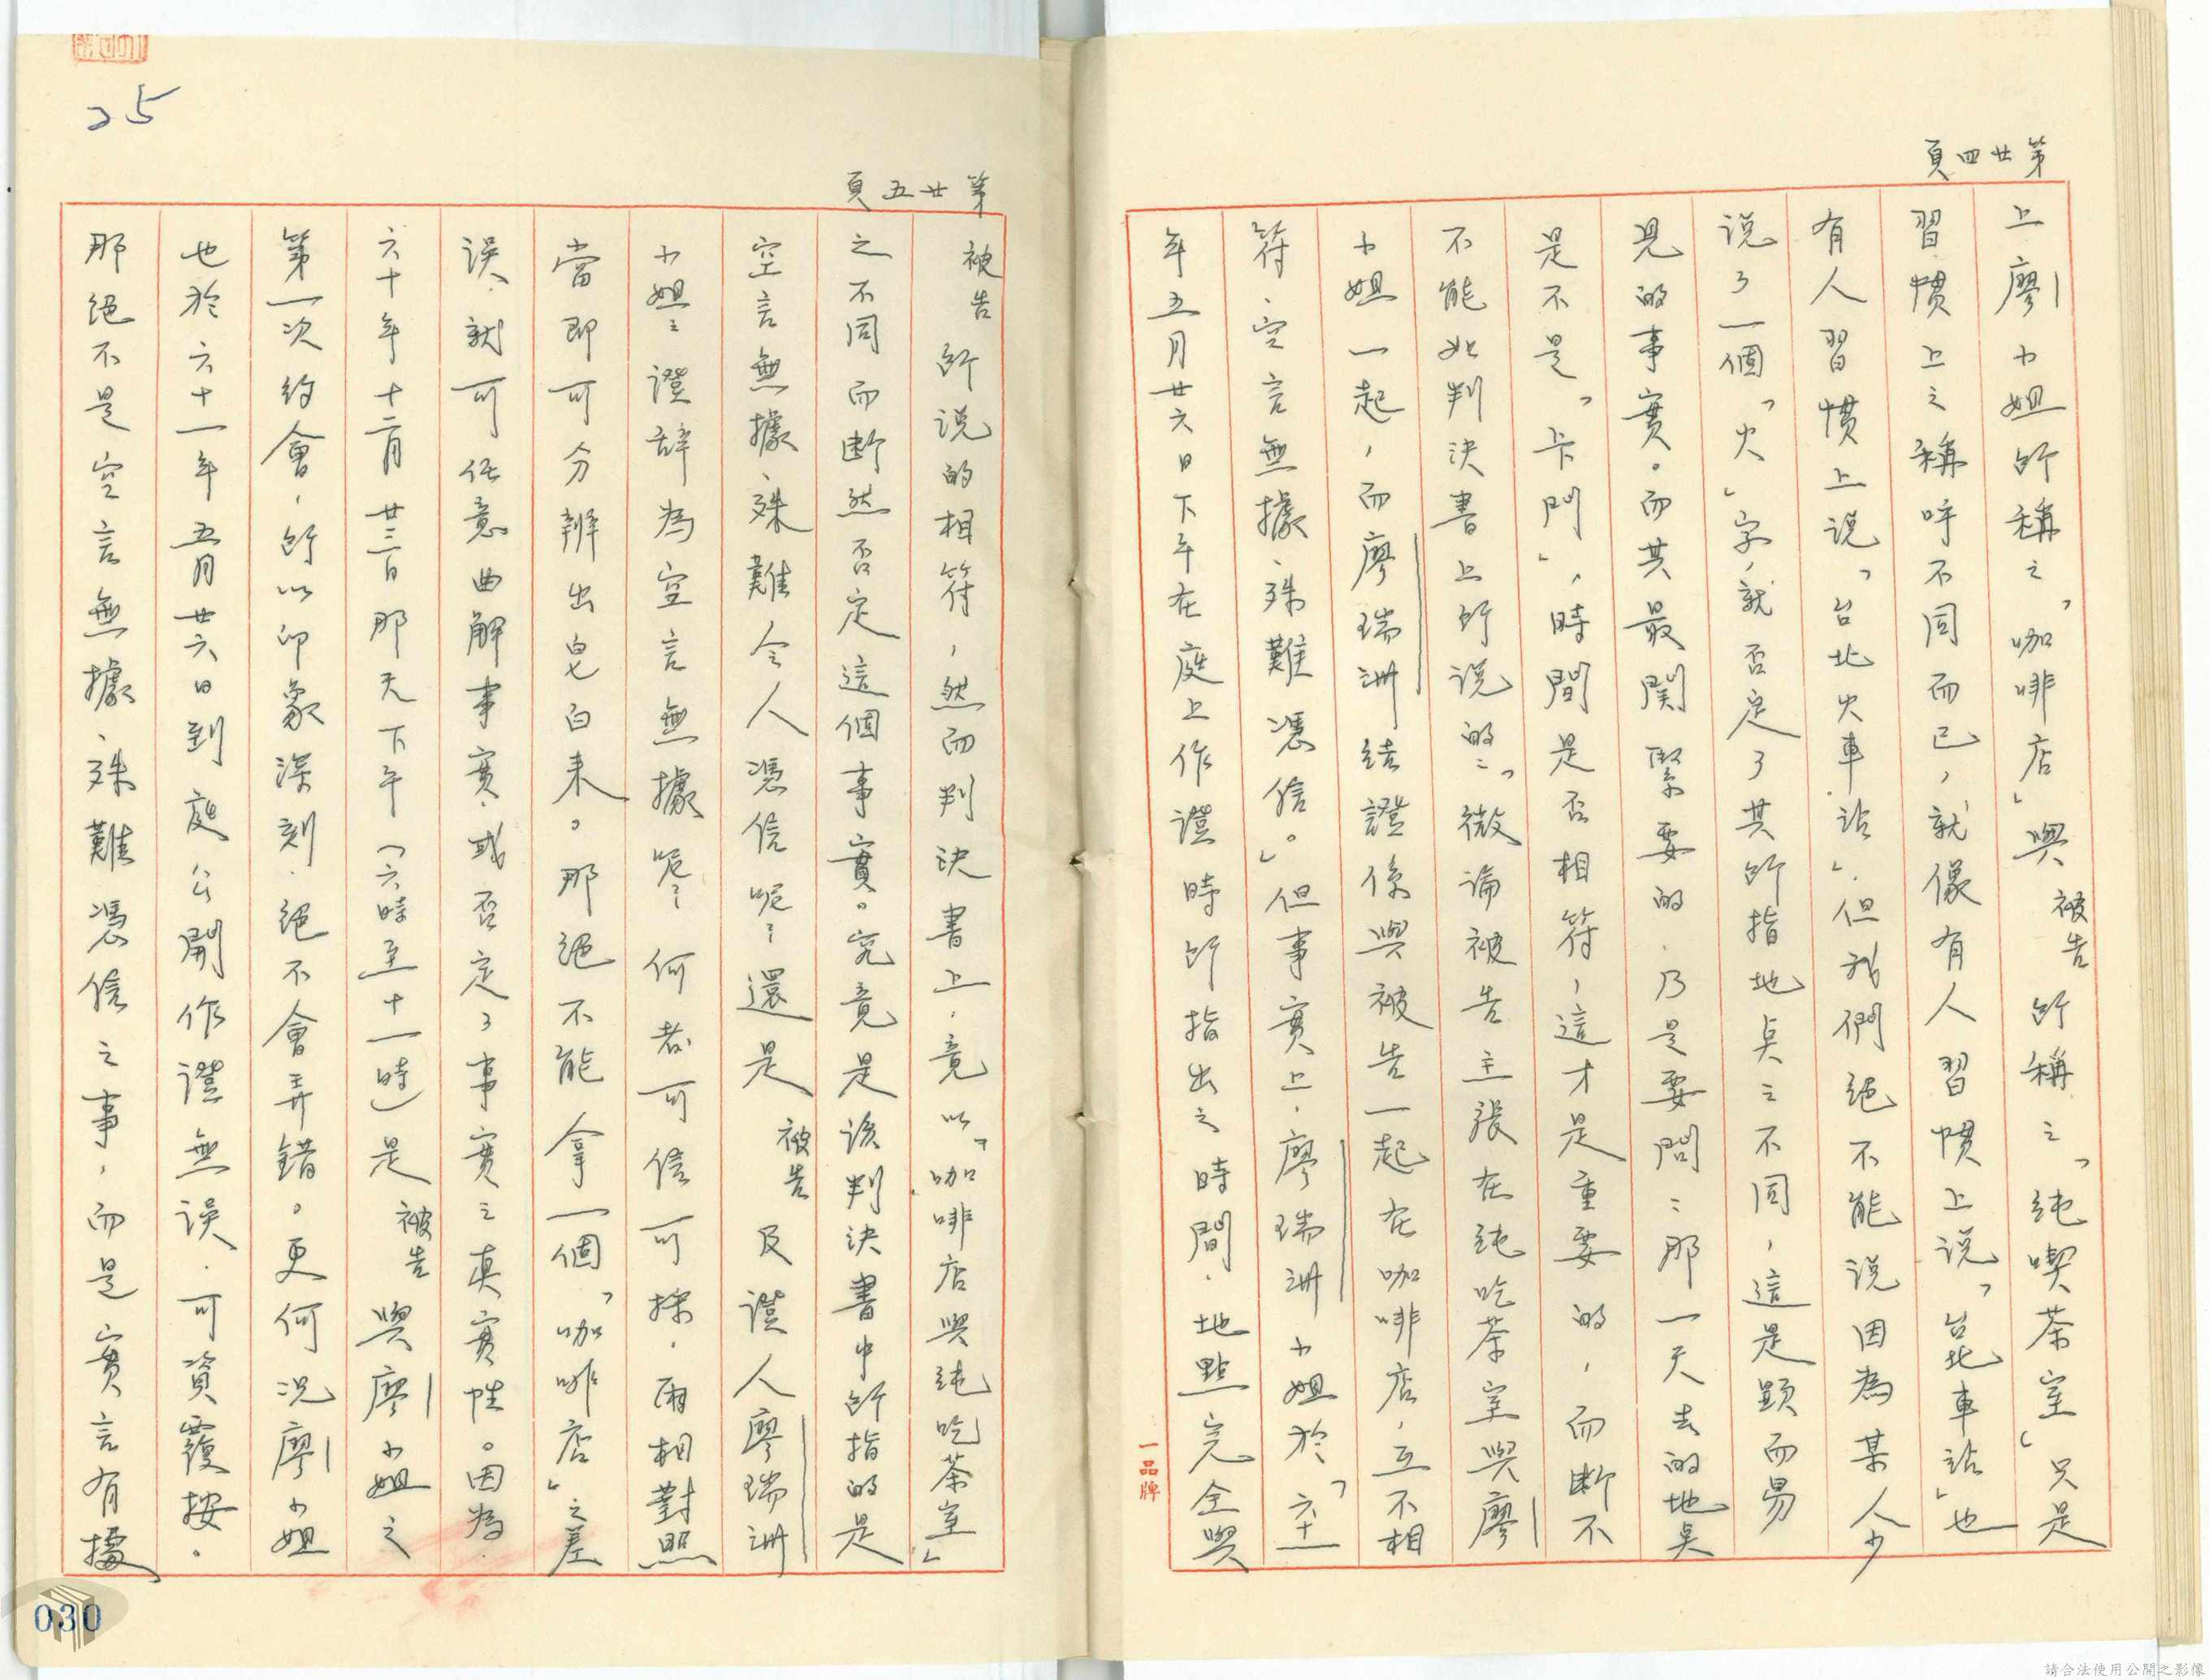 第廿四頁
上廖小姐所稱之「咖啡店」與被告所稱之「純喫茶室」只是
習慣上之稱呼不同而已，就像有人習慣上說「台北車站」也
有人習慣上說「台北火車站」，但我們絕不能說因為某人少
說了一個「火」字，就否定了其所指地点之不同，這是顯而易
見的事實。而其最関緊要的，乃是要問：那一天去的地点
是不是「卡門」，時間是否相符，這才是重要的，而断不
不能如判決書上所說的：「微論被告主張在純吃茶室與廖
小姐一起，而廖瑞洲結證係與被告一起在咖啡店，互不相
符，空言無據，殊難憑信。」但事實上，廖瑞洲小姐於「六十一
年五月廿六日下午在庭上作證時所指出之時間，地點完全與
一品牌
第廿五頁
被告所說的相符，然而判決書上，竟以「咖啡店與純吃茶室」
之不同而断然否定這個事實。究竟是該判決書中所指的是
空言無據，殊難令人憑信呢？還是被告及證人廖瑞洲
小姐之證辞為空言無據呢？何者可信可採，兩相對照
當即可分辨出皂白来。那絕不能拿一個「咖啡店」之差
誤，就可任意曲解事實，或否定了事實之真實性。因為
六十年十二月廿三日那天下午（六時至十一時）是被告與廖小姐之
第一次約會，所以印象深刻，絕不會弄錯。更何況廖小姐
也於六十一年五月廿六日到庭公開作證無誤，可資覆按。
那絕不是空言無據，殊難憑信之事，而是實言有據
25
030
請合法使用公開之影像